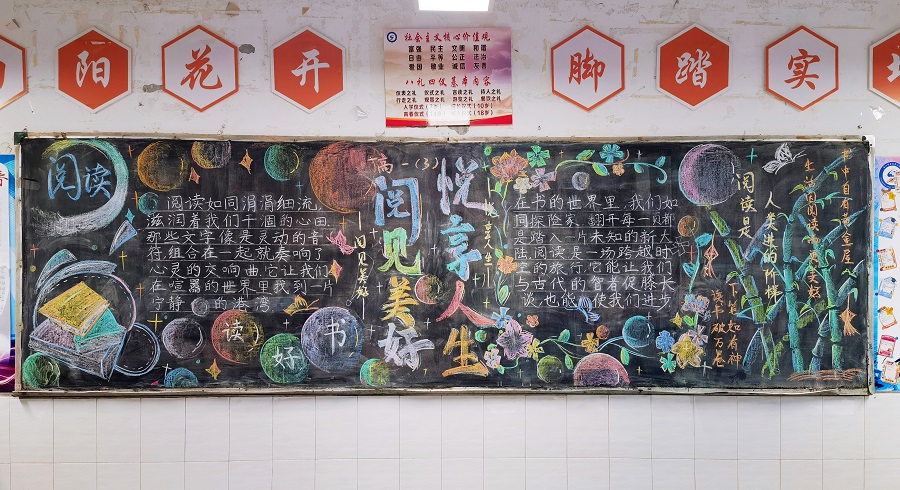 阳
花
开
社会主义核心价值观
富强 民主 文明 和谐
自由 平等 公正 法治
爱国 敬业 诚信 友善
八礼四仪基本内容
仪表之礼 仪式之礼 言谈之礼 待人之礼
行走之礼 观赏之礼 游览之礼 餐饮之礼
脚
踏
实
阅读
阅读如同涓涓细流,
滋润着我们干涸的心田.
那些文字像是灵动的音
符,组合在一起就奏响了
心灵的交响曲.它让我们
在喧嚣的世界里找到一片
宁静的港湾.
读
好
书
高一(3)
阅见美好
悦享人生
阅见美好
悦享人生
在书的世界里.我们如
同探险家.翻开每一页都
是踏入一片未知的新大
陆.阅读是一场跨越时
空的旅行.它能让我们
与古代的智者促膝长
谈.也能使我们进步
阅读是
人类进的阶梯
读书破万卷
下笔如有神
书中自有黄金屋